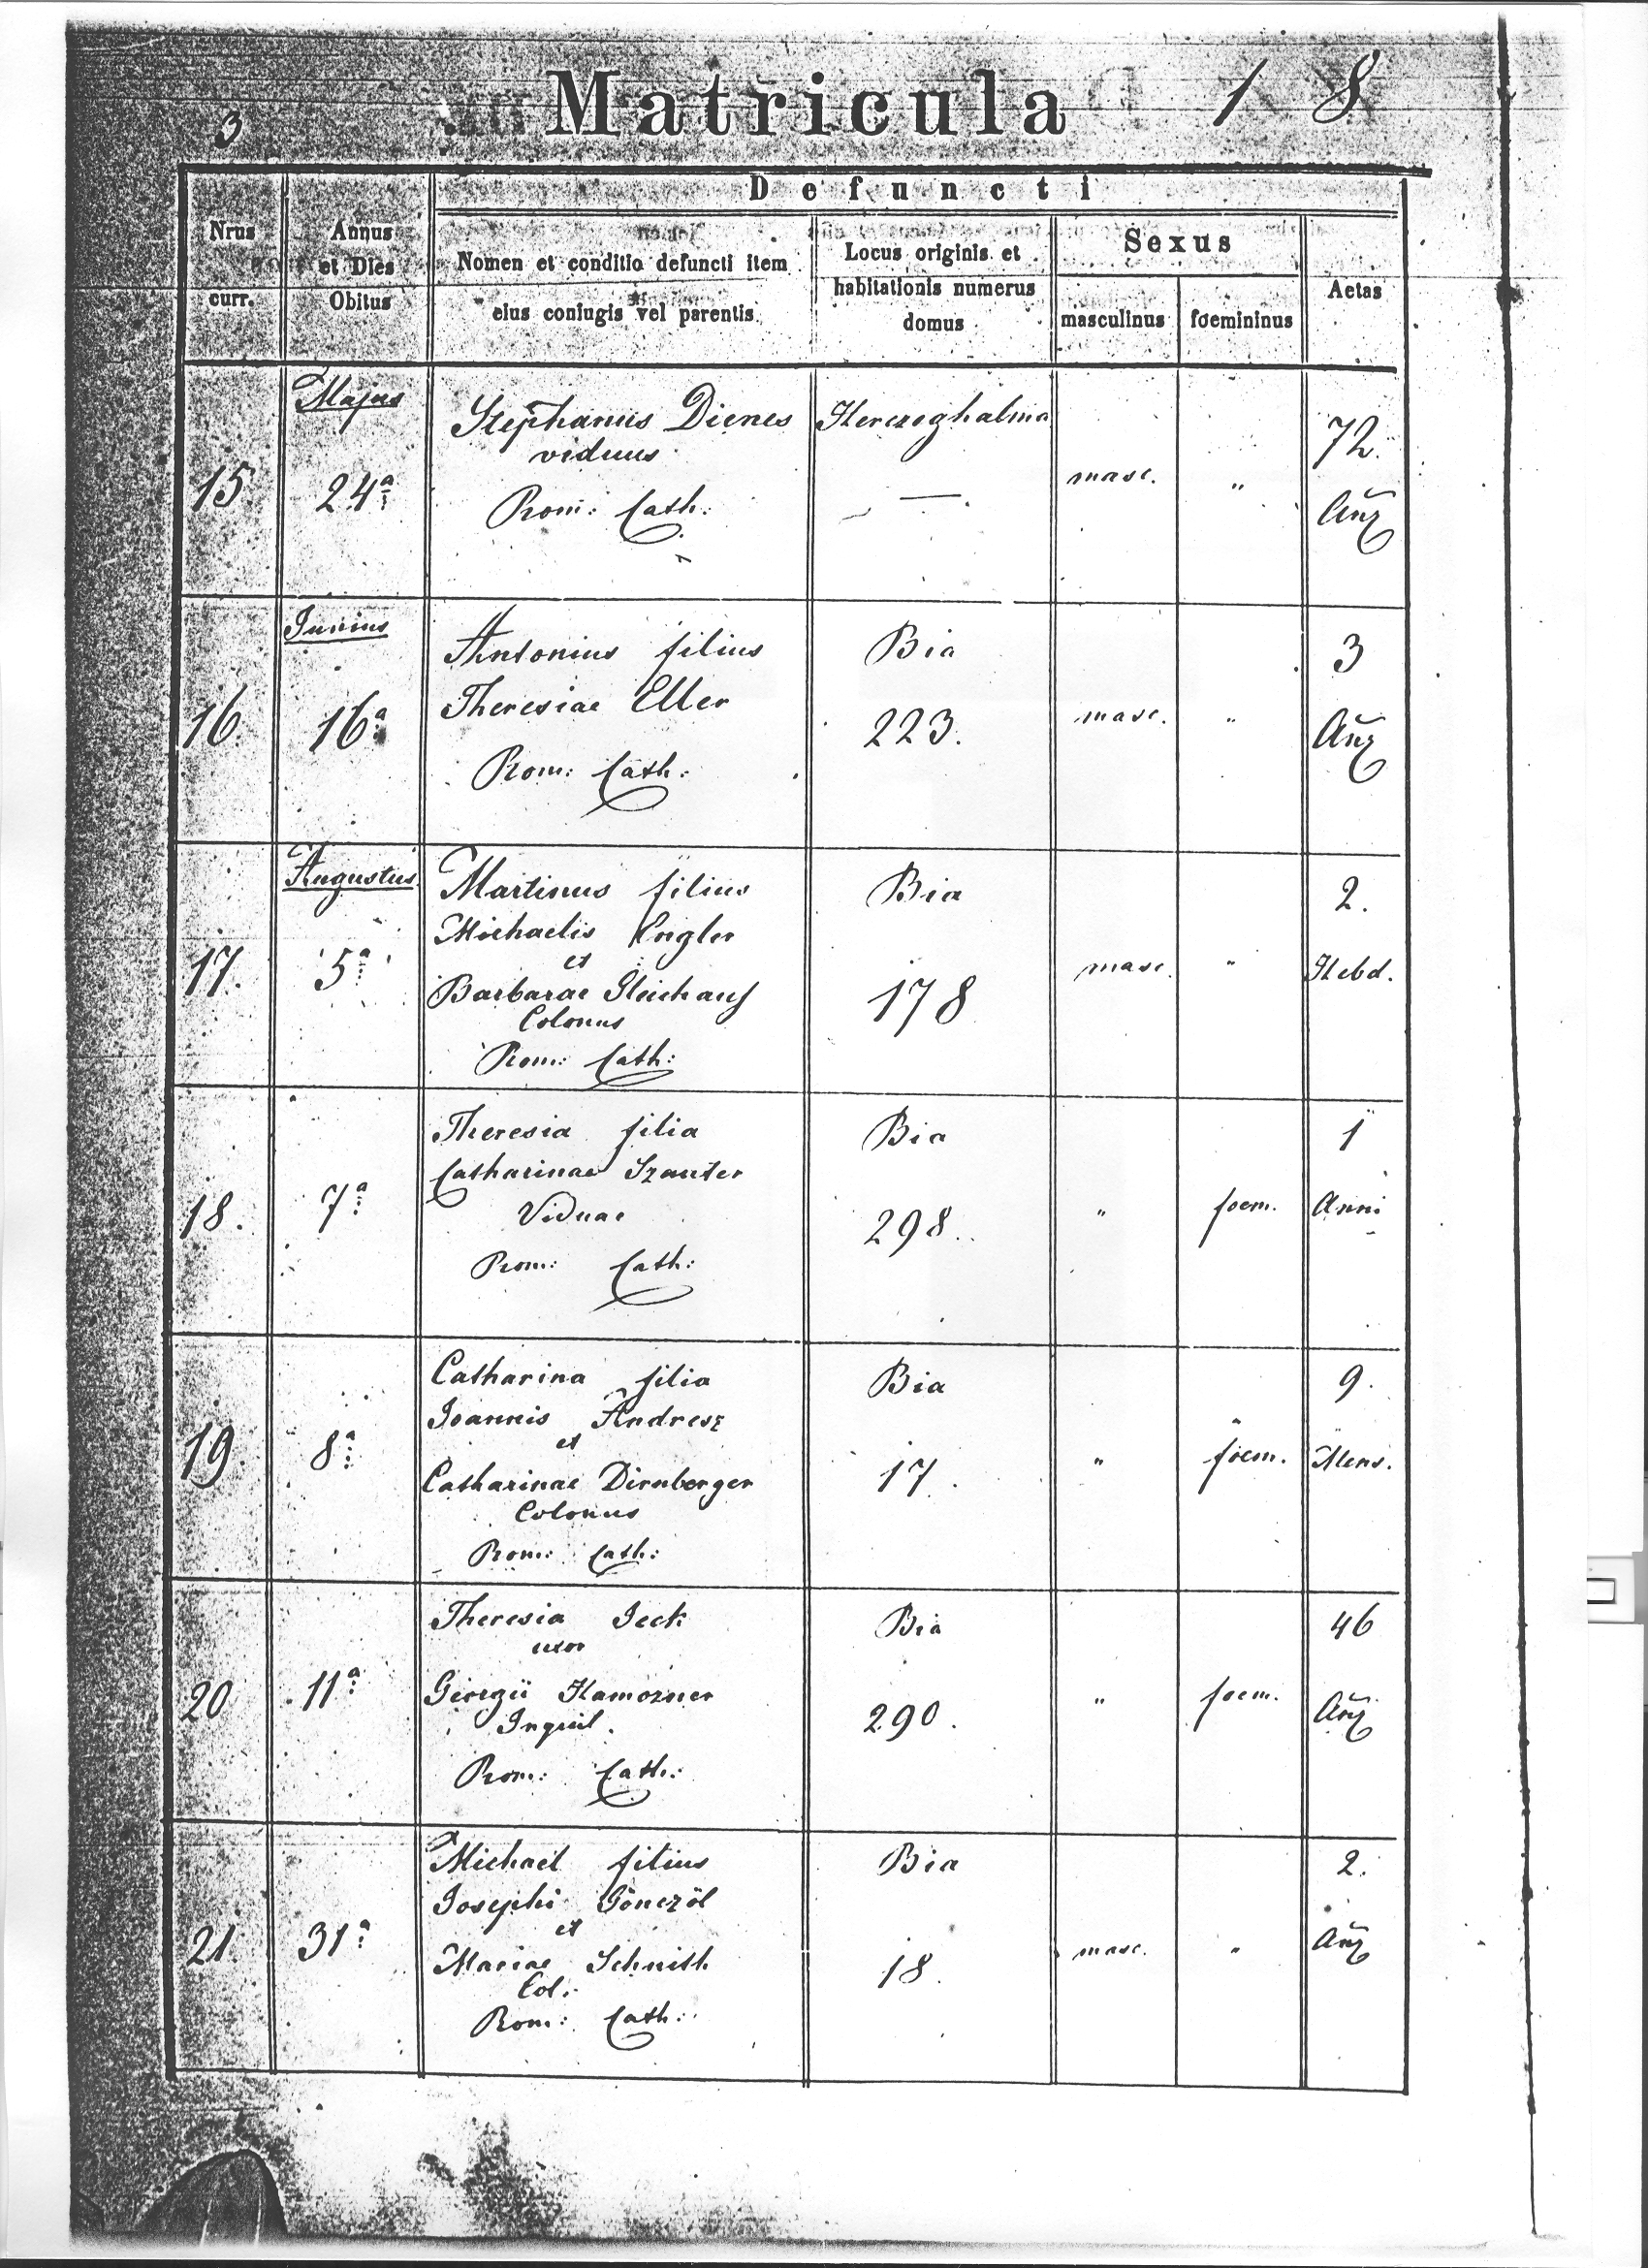 3 Matricula 1 8
Defuncti
Nrus
curr.
Annus
et Dies
Obitus
Nomen et conditio defuncti item
eius coniugis vel parentis
Locus originis et
habitationis numerus
domus
Sexus
masculinus foemininus
Aetas
Majus
15. 24a
Stephanus Dienes
viduus
Rom: Cath:
Herczeghalma
—
masc. "
72.
Añ
Junius
16. 16a
Antonius filius
Theresiae Eller
Rom: Cath:
Bia
223.
masc. "
3
Añ
Augustus
17. 5a
Martinus filius
Michaelis Engler
et
Barbarae Gleichauf
Colonus
Rom: Cath:
Bia
178
masc. "
2.
Hebd.
18. 7a
Theresia filia
Catharinae Szauter
Viduae
Rom: Cath:
Bia
298.
" foem.
1
Anni
19. 8a
Catharina filia
Joannis Andresz
et
Catharinae Dirnberger
Colonus
Rom: Cath:
Bia
17.
" foem.
9.
Mens.
20 11a
Theresia Jeck
uxor
Georgii Hamozner
Inquil.
Rom: Cath:
Bia
290.
" foem.
46
Añ
21. 31a
Michael filius
Josephi Gönczöl
et
Mariae Schmith
Col:
Rom: Cath:
Bia
18.
masc. "
2.
Añ